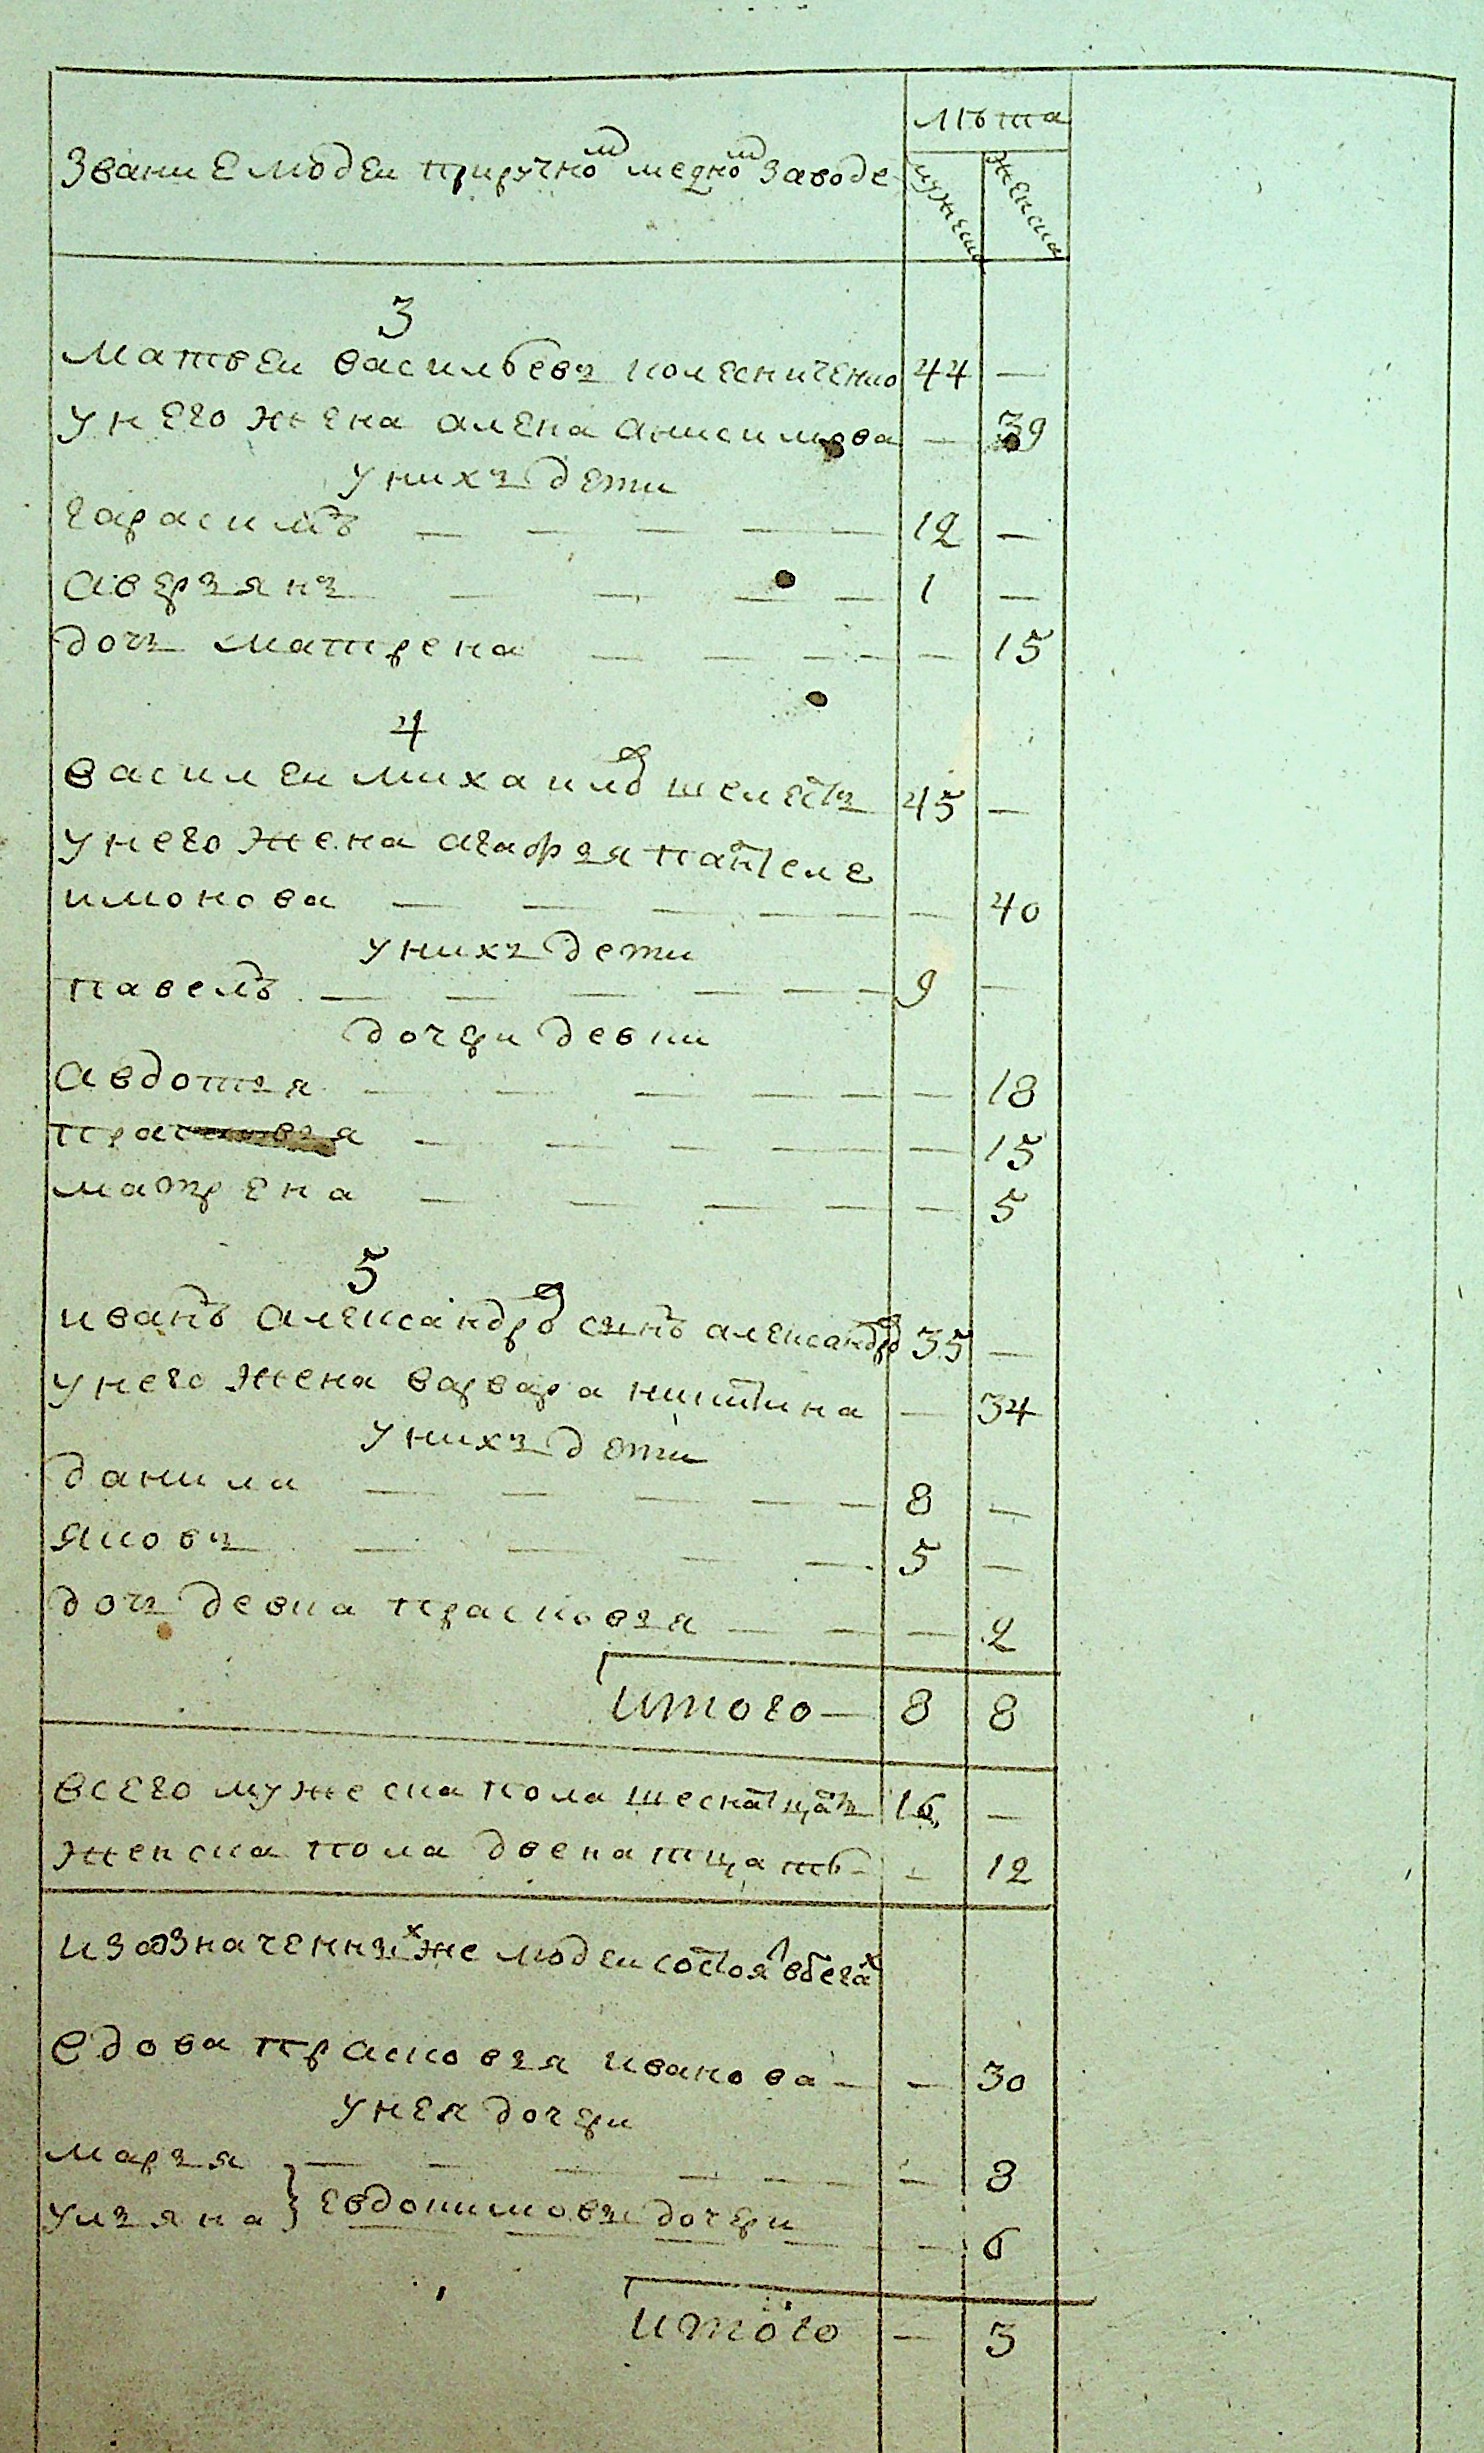 лѣта
Звание людеи приручномъ медномъ заводе
мужеска
женска
3
матвеи васильевъ колесниченко 44 —
у него жена алена анисимова — 39
у нихъ дети
гарасимъ — — — — 12 —
аверъянъ — — — — 1 —
дочъ матрена — — — — — 15
4
василеи михаиловъ шелестъ 45 —
у него жена агафъя пантеле
имонова — — — — — — 40
у нихъ дети
павелъ — — — — — — 9 —
дочери девки
авдотъя — — — — — — 18
прасковъя — — — — — 15
матрена — — — — — 5
5
иванъ александровъ сынъ александровъ 35 —
у него жена варвара никитина — 34
у нихъ дети
данила — — — — — 8 —
яковъ — — — — 5 —
дочъ девка прасковъя — — — 2
итого — 8 8
всего мужеска пола шеснатцать 16 —
женска пола двенатцать — — 12
из означенных же людеи состоят в бегах
вдова прасковъя иванова — — 30
у нея дочери
маръя — — — — — — 8
улъяна } евдокимовы дочери — 6
итого — 3